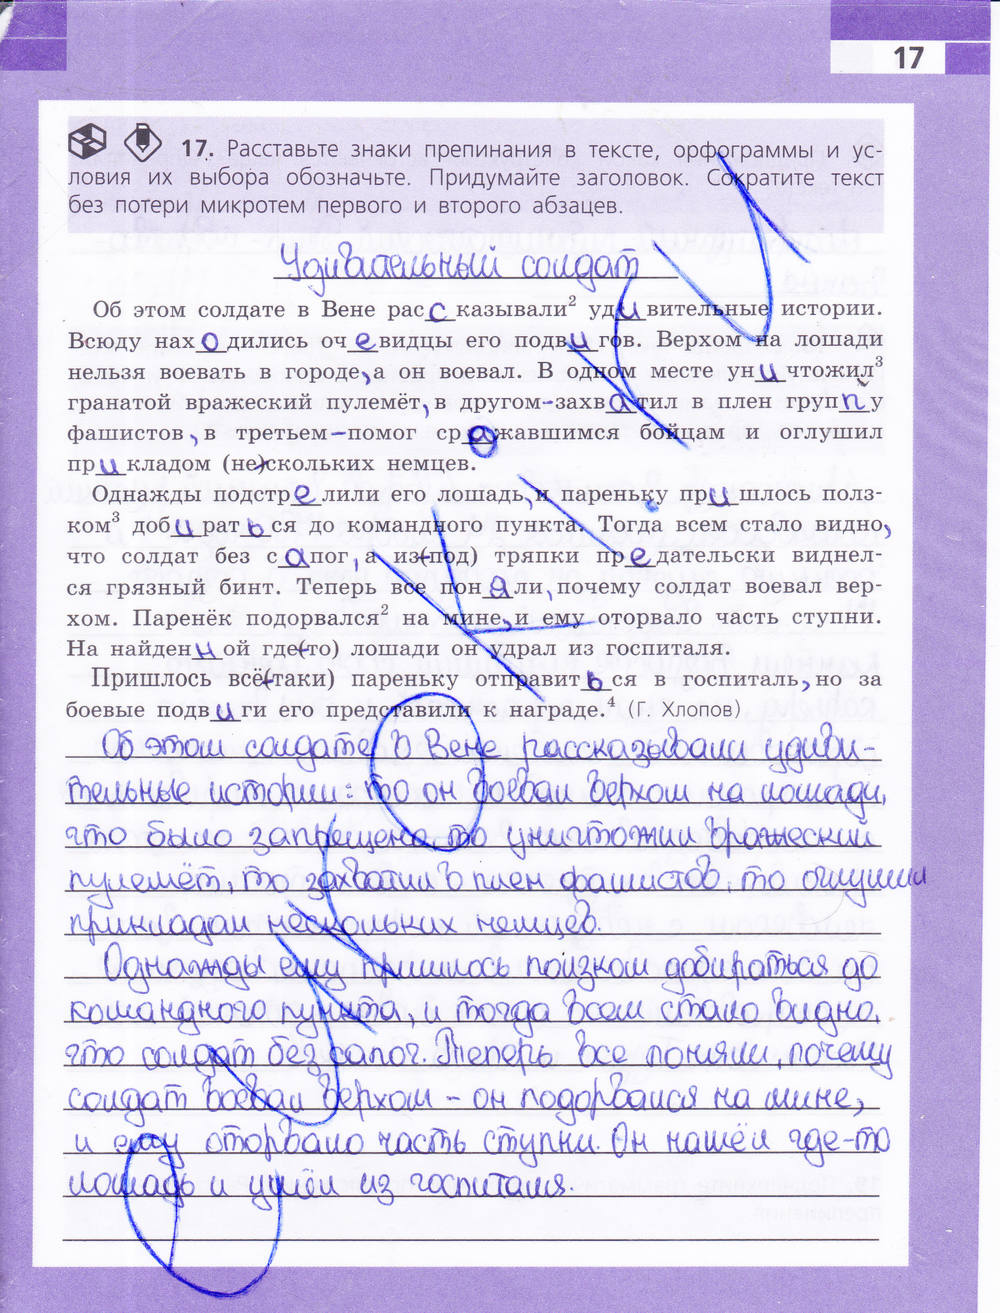 17
17. Расставьте знаки препинания в тексте, орфограммы и ус-
ловия их выбора обозначьте. Придумайте заголовок. Сократите текст
без потери микротем первого и второго абзацев.
Удивительный солдат
Об этом солдате в Вене рассказывали² удивительные истории.
Всюду находились очевидцы его подвигов. Верхом на лошади
нельзя воевать в городе, а он воевал. В одном месте уничтожил³
гранатой вражеский пулемёт, в другом - захватил в плен группу
фашистов, в третьем - помог сражавшимся бойцам и оглушил
прикладом (не)скольких немцев.
Однажды подстрелили его лошадь, и пареньку пришлось полз-
ком³ добираться до командного пункта. Тогда всем стало видно,
что солдат без сапог, а из-(под) тряпки предательски виднел-
ся грязный бинт. Теперь все поняли, почему солдат воевал вер-
хом. Паренёк подорвался² на мине, и ему оторвало часть ступни.
На найденной где-(то) лошади он удрал из госпиталя.
Пришлось всё-(таки) пареньку отправиться в госпиталь, но за
боевые подвиги его представили к награде.⁴ (Г. Хлопов)
Об этом солдате в Вене рассказывали удиви-
тельные истории: то он воевал верхом на лошади,
что было запрещено, то уничтожил вражеский
пулемёт, то захватил в плен фашистов, то оглушил
прикладом нескольких немцев.
Однажды ему пришлось ползком добираться до
командного пункта, и тогда всем стало видно,
что солдат без сапог. Теперь все поняли, почему
солдат воевал верхом - он подорвался на мине,
и ему оторвало часть ступни. Он нашёл где-то
лошадь и ушёл из госпиталя.